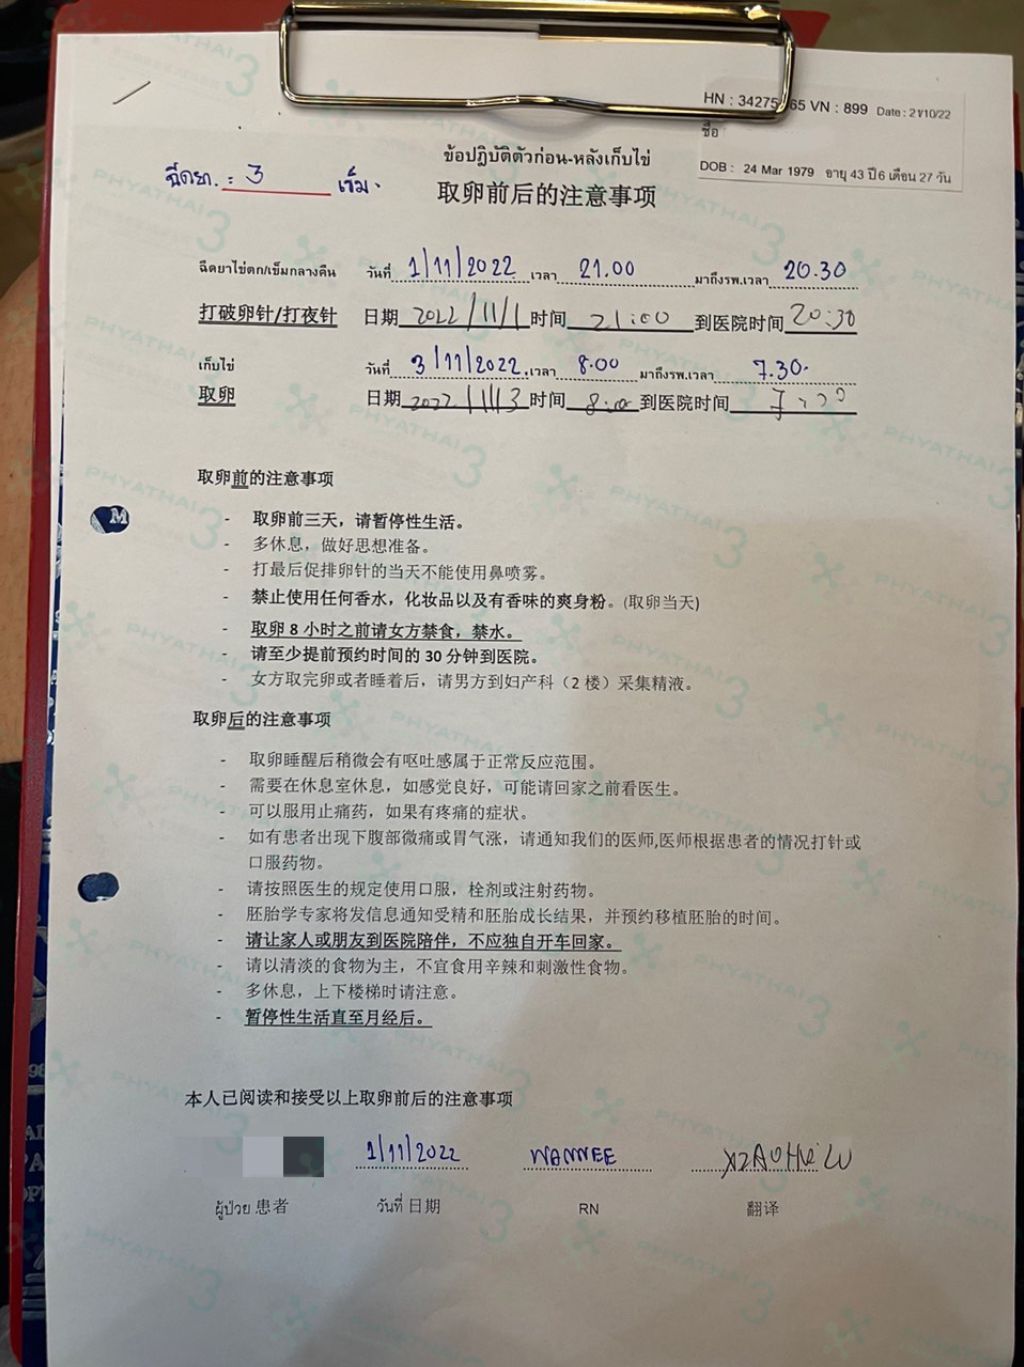 HN : 34275 65 VN : 899 Date : 21/10/22
ชื่อ
DOB : 24 Mar 1979 อายุ 43 ปี 6 เดือน 27 วัน
ข้อปฏิบัติตัวก่อน-หลังเก็บไข่
ฉีดยา : 3 เข็ม
取卵前后的注意事项
ฉีดยาไข่ตก/เข็มกลางคืน วันที่ 1/11/2022 เวลา 21.00 มาถึงรพ.เวลา 20.30
打破卵针/打夜针 日期 2022/11/1 时间 21:00 到医院时间 20:30
เก็บไข่ วันที่ 3/11/2022 เวลา 8.00 มาถึงรพ.เวลา 7.30
取卵 日期 2022/11/3 时间 8:00 到医院时间
取卵前的注意事项
- 取卵前三天，请暂停性生活。
- 多休息，做好思想准备。
- 打最后促排卵针的当天不能使用鼻喷雾。
- 禁止使用任何香水，化妆品以及有香味的爽身粉。(取卵当天)
- 取卵 8 小时之前请女方禁食，禁水。
- 请至少提前预约时间的 30 分钟到医院。
- 女方取完卵或者睡着后，请男方到妇产科（2 楼）采集精液。
取卵后的注意事项
- 取卵睡醒后稍微会有呕吐感属于正常反应范围。
- 需要在休息室休息，如感觉良好，可能请回家之前看医生。
- 可以服用止痛药，如果有疼痛的症状。
- 如有患者出现下腹部微痛或胃气涨，请通知我们的医师,医师根据患者的情况打针或
口服药物。
- 请按照医生的规定使用口服，栓剂或注射药物。
- 胚胎学专家将发信息通知受精和胚胎成长结果，并预约移植胚胎的时间。
- 请让家人或朋友到医院陪伴，不应独自开车回家。
- 请以清淡的食物为主，不宜食用辛辣和刺激性食物。
- 多休息，上下楼梯时请注意。
- 暂停性生活直至月经后。
本人已阅读和接受以上取卵前后的注意事项
1/11/2022 WANNEE XIAOHUI LU
ผู้ป่วย 患者 วันที่ 日期 RN 翻译
PHYATHAI 3